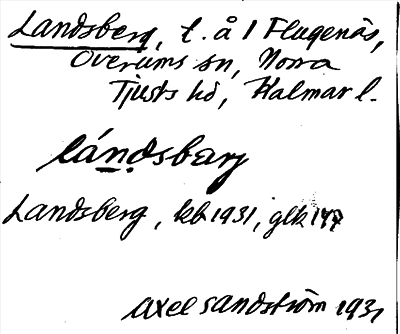 Landsberg, t. å 1 Flugenäs,
Överums sn, Norra
Tjusts hd, Kalmar l.
lánd̥sbærj
Landsberg, kb 1931, glk
Axel Sandström 1931